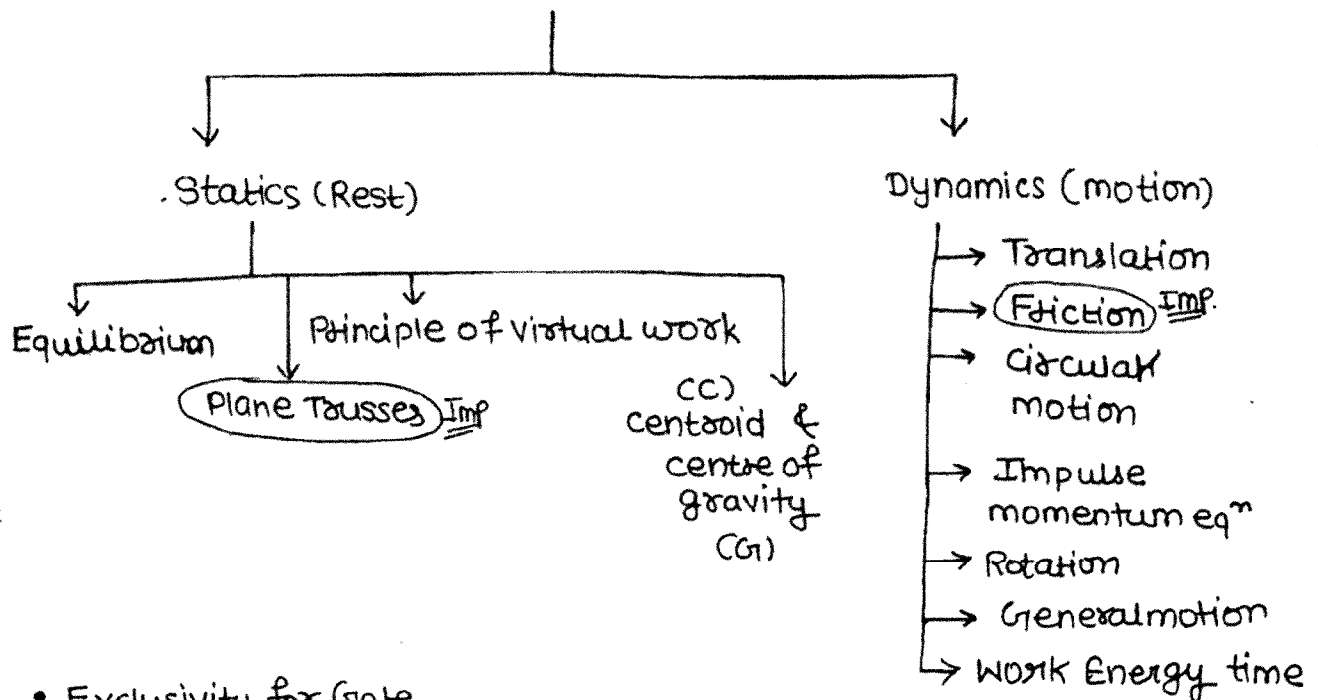 Statics (Rest)
Equilibrium
Principle of virtual work
Plane Trusses Imp
(C)
centroid &
centre of
gravity
(G)
Dynamics (motion)
Translation
Friction Imp.
circular
motion
Impulse
momentum eqⁿ
Rotation
General motion
Work Energy time
• Exclusivity for Gate